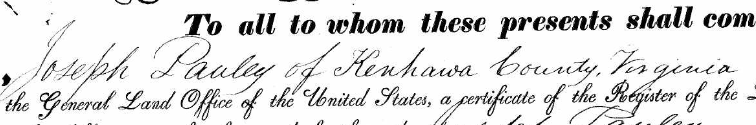 To all to whom these presents shall com
Joseph Pauley of Kenhawa County, Virginia
the General Land Office of the United States, a certificate of the Register of the
Pauley